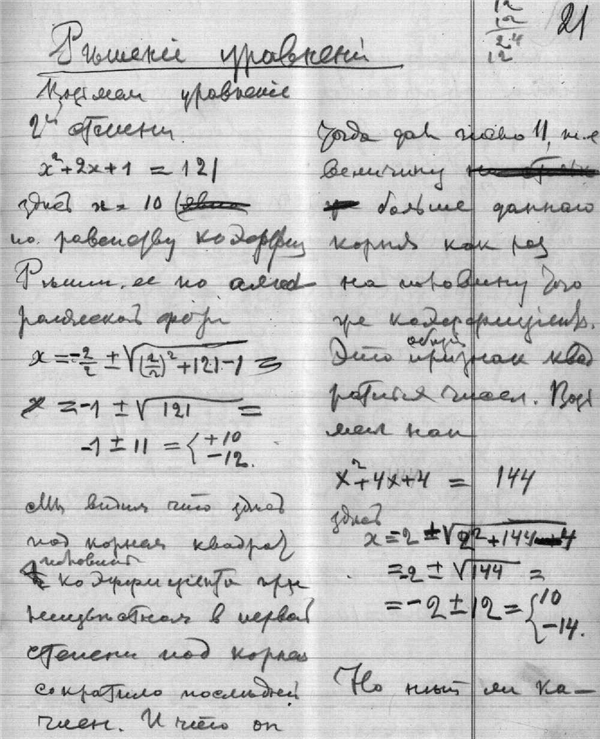 21
12
12
24
12
Рѣшеніе уравненій
Возьмем уравненіе
2й степени.
x²+2x+1 = 121
здѣсь x = 10
по равенству коэффиц
Рѣшим ее по алгеб
раической форм
x = -2/2 ± √((2/2)² + 121 - 1 =
x = -1 ± √121 =
-1 ± 11 = { +10
-12.
Мы видим что здѣсь
под корнем квадрат
половины
коэффициента при
неизвѣстном в первой
степени под корнем
сократило послѣдній
член. И что он
Тогда дал число 11, т.е.
величину
больше данного
корня как раз
на половину того
же коэффициента.
Это общій признак квад
ратных чисел. Возь
мем как
x²+4x+4 = 144
здѣсь
x = -2 ± √2²+144-4
= -2 ± √144 =
= -2 ± 12 = { 10
-14.
Но нѣт ли ка-